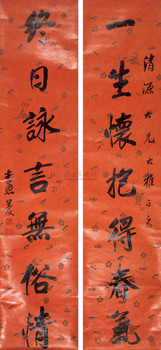 清源大兄大雅正之
一生懷抱得春氣
終日詠言無俗情